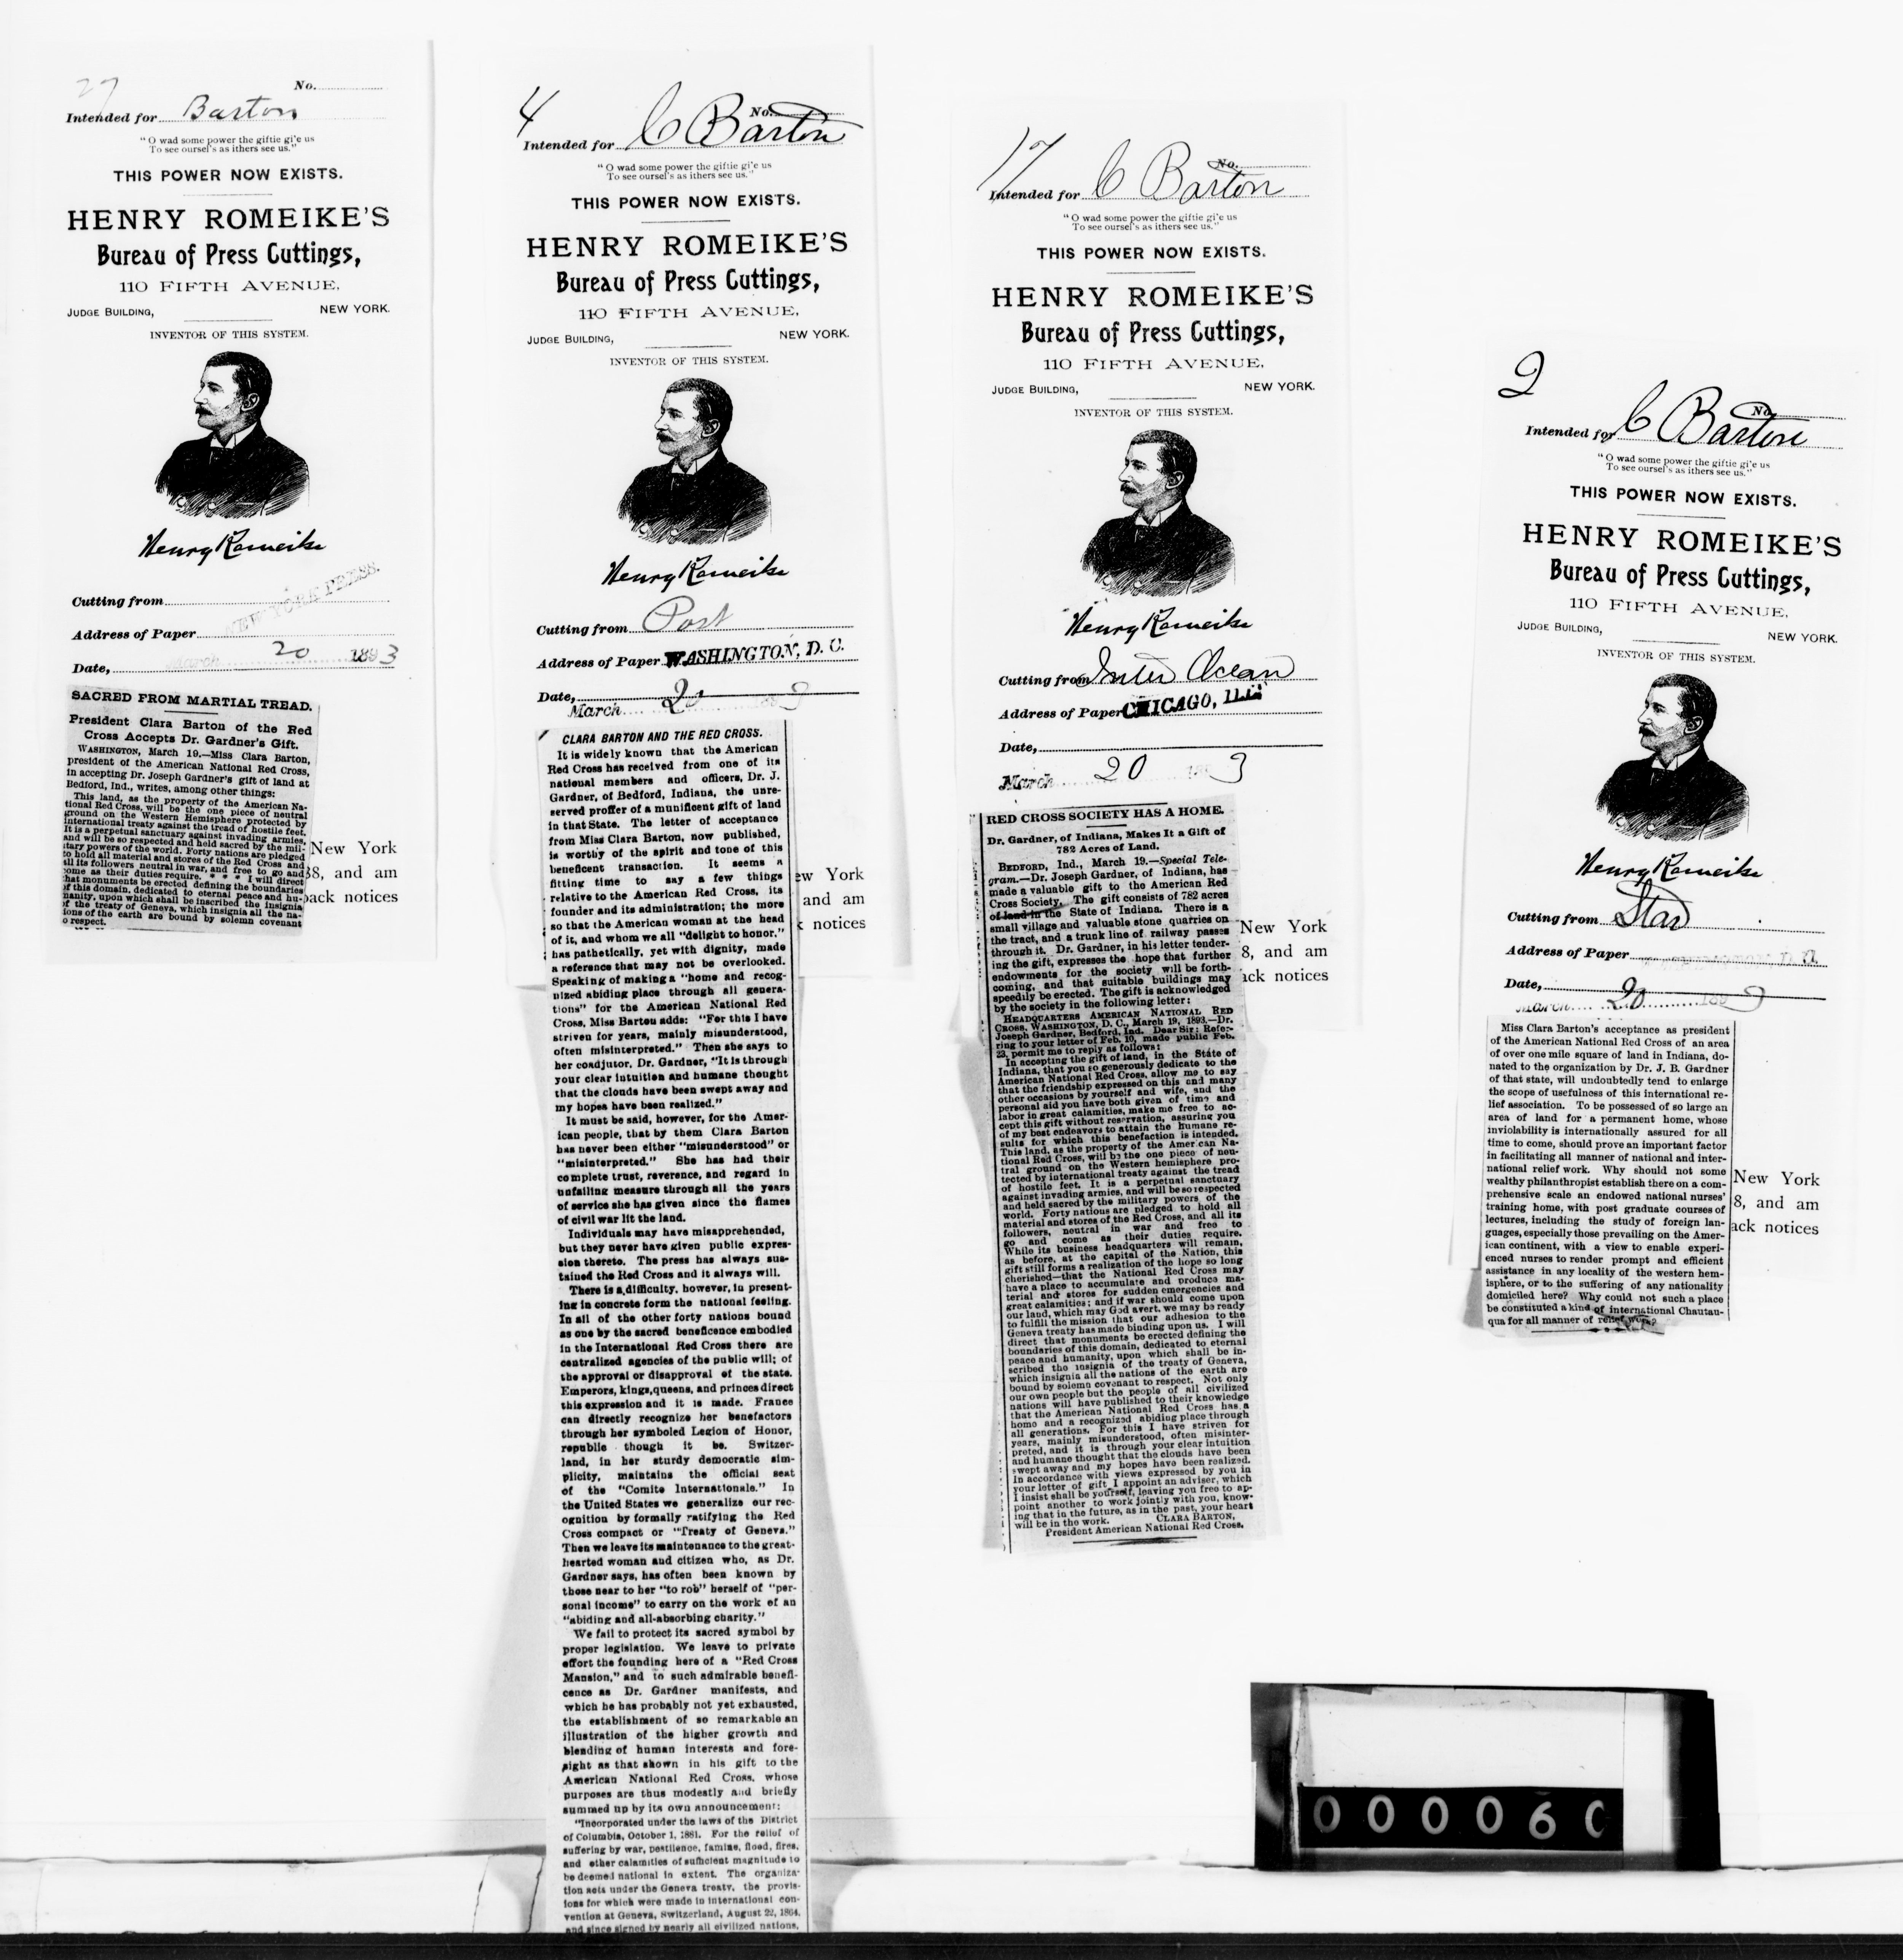 27
No.
Intended for Barton
"O wad some power the giftie gi'e us
To see oursel's as ithers see us."
THIS POWER NOW EXISTS.
HENRY ROMEIKE'S
Bureau of Press Cuttings,
110 FIFTH AVENUE,
JUDGE BUILDING, NEW YORK.
INVENTOR OF THIS SYSTEM.
Henry Romeike
Cutting from
NEW YORK PRESS.
Address of Paper
Date, March 20 1893
SACRED FROM MARTIAL TREAD.
President Clara Barton of the Red
Cross Accepts Dr. Gardner's Gift.
WASHINGTON, March 19.—Miss Clara Barton,
president of the American National Red Cross,
in accepting Dr. Joseph Gardner's gift of land at
Bedford, Ind., writes, among other things:
This land, as the property of the American Na-
tional Red Cross, will be the one piece of neutral
ground on the Western Hemisphere protected by
international treaty against the tread of hostile feet.
It is a perpetual sanctuary against invading armies,
and will be so respected and held sacred by the mil-
itary powers of the world. Forty nations are pledged
to hold all material and stores of the Red Cross and
all its followers neutral in war, and free to go and
come as their duties require. * * * I will direct
that monuments be erected defining the boundaries
of this domain, dedicated to eternal peace and hu-
manity, upon which shall be inscribed the insignia
of the treaty of Geneva, which insignia all the na-
tions of the earth are bound by solemn covenant
o respect.
New York
88, and am
back notices
4
No.
Intended for C Barton
"O wad some power the giftie gi'e us
To see oursel's as ithers see us."
THIS POWER NOW EXISTS.
HENRY ROMEIKE'S
Bureau of Press Cuttings,
110 FIFTH AVENUE,
JUDGE BUILDING, NEW YORK.
INVENTOR OF THIS SYSTEM.
Henry Romeike
Cutting from Post
Address of Paper WASHINGTON, D. C.
Date,
March 20 1893
CLARA BARTON AND THE RED CROSS.
It is widely known that the American
Red Cross has received from one of its
national members and officers, Dr. J.
Gardner, of Bedford, Indiana, the unre-
served proffer of a munificent gift of land
in that State. The letter of acceptance
from Miss Clara Barton, now published,
is worthy of the spirit and tone of this
beneficent transaction. It seems a
fitting time to say a few things
relative to the American Red Cross, its
founder and its administration; the more
so that the American woman at the head
of it, and whom we all "delight to honor,"
has pathetically, yet with dignity, made
a reference that may not be overlooked.
Speaking of making a "home and recog-
nized abiding place through all genera-
tions" for the American National Red
Cross, Miss Barton adds: "For this I have
striven for years, mainly misunderstood,
often misinterpreted." Then she says to
her coadjutor, Dr. Gardner, "It is through
your clear intuition and humane thought
that the clouds have been swept away and
my hopes have been realized."
It must be said, however, for the Amer-
ican people, that by them Clara Barton
has never been either "misunderstood" or
"misinterpreted." She has had their
complete trust, reverence, and regard in
unfailing measure through all the years
of service she has given since the flames
of civil war lit the land.
Individuals may have misapprehended,
but they never have given public expres-
sion thereto. The press has always sus-
tained the Red Cross and it always will.
There is a difficulty, however, in present-
ing in concrete form the national feeling.
In all of the other forty nations bound
as one by the sacred beneficence embodied
in the International Red Cross there are
centralized agencies of the public will; of
the approval or disapproval of the state.
Emperors, kings, queens, and princes direct
this expression and it is made. France
can directly recognize her benefactors
through her symboled Legion of Honor,
republic though it be. Switzer-
land, in her sturdy democratic sim-
plicity, maintains the official seat
of the "Comite Internationale." In
the United States we generalize our rec-
ognition by formally ratifying the Red
Cross compact or "Treaty of Geneva."
Then we leave its maintenance to the great-
hearted woman and citizen who, as Dr.
Gardner says, has often been known by
those near to her "to rob" herself of "per-
sonal income" to carry on the work of an
"abiding and all-absorbing charity."
We fail to protect its sacred symbol by
proper legislation. We leave to private
effort the founding here of a "Red Cross
Mansion," and to such admirable benefi-
cence as Dr. Gardner manifests, and
which he has probably not yet exhausted,
the establishment of so remarkable an
illustration of the higher growth and
blending of human interests and fore-
sight as that shown in his gift to the
American National Red Cross, whose
purposes are thus modestly and briefly
summed up by its own announcement:
"Incorporated under the laws of the District
of Columbia, October 1, 1881. For the relief of
suffering by war, pestilence, famine, flood, fires,
and other calamities of sufficient magnitude to
be deemed national in extent. The organiza-
tion acts under the Geneva treaty, the provis-
ions for which were made in international con-
vention at Geneva, Switzerland, August 22, 1864,
and since signed by nearly all civilized nations,
ew York
and am
k notices
17
No.
Intended for C Barton
"O wad some power the giftie gi'e us
To see oursel's as ithers see us."
THIS POWER NOW EXISTS.
HENRY ROMEIKE'S
Bureau of Press Cuttings,
110 FIFTH AVENUE,
JUDGE BUILDING, NEW YORK.
INVENTOR OF THIS SYSTEM.
Henry Romeike
Cutting from Inter Ocean
Address of Paper CHICAGO, ILL.
Date,
March 20 1893
RED CROSS SOCIETY HAS A HOME.
Dr. Gardner, of Indiana, Makes It a Gift of
782 Acres of Land.
BEDFORD, Ind., March 19.—Special Tele-
gram.—Dr. Joseph Gardner, of Indiana, has
made a valuable gift to the American Red
Cross Society. The gift consists of 782 acres
of land in the State of Indiana. There is a
small village and valuable stone quarries on
the tract, and a trunk line of railway passes
through it. Dr. Gardner, in his letter tender-
ing the gift, expresses the hope that further
endowments for the society will be forth-
coming, and that suitable buildings may
speedily be erected. The gift is acknowledged
by the society in the following letter:
HEADQUARTERS AMERICAN NATIONAL RED
CROSS, WASHINGTON, D. C., March 19, 1893.—Dr.
Joseph Gardner, Bedford, Ind. Dear Sir: Refer-
ring to your letter of Feb. 10, made public Feb.
23, permit me to reply as follows:
In accepting the gift of land, in the State of
Indiana, that you so generously dedicate to the
American National Red Cross, allow me to say
that the friendship expressed on this and many
other occasions by yourself and wife, and the
personal aid you have both given of time and
labor in great calamities, make me free to ac-
cept this gift without reservation, assuring you
of my best endeavors to attain the humane re-
sults for which this benefaction is intended.
This land, as the property of the American Na-
tional Red Cross, will be the one piece of neu-
tral ground on the Western hemisphere pro-
tected by international treaty against the tread
of hostile feet. It is a perpetual sanctuary
against invading armies, and will be so respected
and held sacred by the military powers of the
world. Forty nations are pledged to hold all
material and stores of the Red Cross, and all its
followers, neutral in war and free to
go and come as their duties require.
While its business headquarters will remain,
as before, at the capital of the Nation, this
gift still forms a realization of the hope so long
cherished—that the National Red Cross may
have a place to accumulate and produce ma-
terial and stores for sudden emergencies and
great calamities; and if war should come upon
our land, which may God avert, we may be ready
to fulfill the mission that our adhesion to the
Geneva treaty has made binding upon us. I will
direct that monuments be erected defining the
boundaries of this domain, dedicated to eternal
peace and humanity, upon which shall be in-
scribed the insignia of the treaty of Geneva,
which insignia all the nations of the earth are
bound by solemn covenant to respect. Not only
our own people but the people of all civilized
nations will have published to their knowledge
that the American National Red Cross has a
home and a recognized abiding place through
all generations. For this I have striven for
years, mainly misunderstood, often misinter-
preted, and it is through your clear intuition
and humane thought that the clouds have been
swept away and my hopes have been realized.
In accordance with views expressed by you in
your letter of gift I appoint an adviser, which
I insist shall be yourself, leaving you free to ap-
point another to work jointly with you, know-
ing that in the future, as in the past, your heart
will be in the work. CLARA BARTON,
President American National Red Cross.
New York
8, and am
ack notices
2
No.
Intended for C Barton
"O wad some power the giftie gi'e us
To see oursel's as ithers see us."
THIS POWER NOW EXISTS.
HENRY ROMEIKE'S
Bureau of Press Cuttings,
110 FIFTH AVENUE,
JUDGE BUILDING, NEW YORK.
INVENTOR OF THIS SYSTEM.
Henry Romeike
Cutting from Star
Address of Paper
Date,
March 20 1893
Miss Clara Barton's acceptance as president
of the American National Red Cross of an area
of over one mile square of land in Indiana, do-
nated to the organization by Dr. J. B. Gardner
of that state, will undoubtedly tend to enlarge
the scope of usefulness of this international re-
lief association. To be possessed of so large an
area of land for a permanent home, whose
inviolability is internationally assured for all
time to come, should prove an important factor
in facilitating all manner of national and inter-
national relief work. Why should not some
wealthy philanthropist establish there on a com-
prehensive scale an endowed national nurses'
training home, with post graduate courses of
lectures, including the study of foreign lan-
guages, especially those prevailing on the Amer-
ican continent, with a view to enable experi-
enced nurses to render prompt and efficient
assistance in any locality of the western hem-
isphere, or to the suffering of any nationality
domiciled here? Why could not such a place
be constituted a kind of international Chautau-
qua for all manner of relief work?
New York
8, and am
ack notices
000060